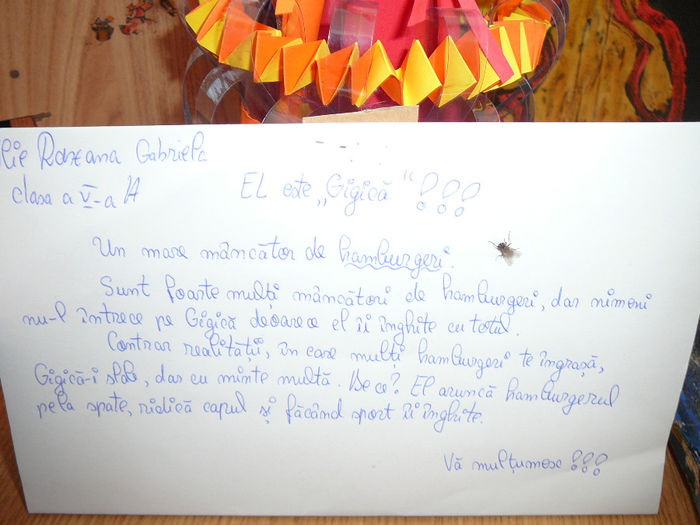 Ilie Roxana Gabriela
clasa a V-a A
EL este „Gigică“!!!
Un mare mâncător de hamburgeri.
Sunt foarte mulți mâncători de hamburgeri, dar nimeni
nu-l întrece pe Gigică deoarece el îi înghite cu totul.
Contrar realității, în care mulți hamburgeri te îngrașă,
Gigică-i slab, dar cu minte multă. De ce? El aruncă hamburgerul
pela spate, ridică capul și făcând sport îi înghite.
Vă mulțumesc!!!